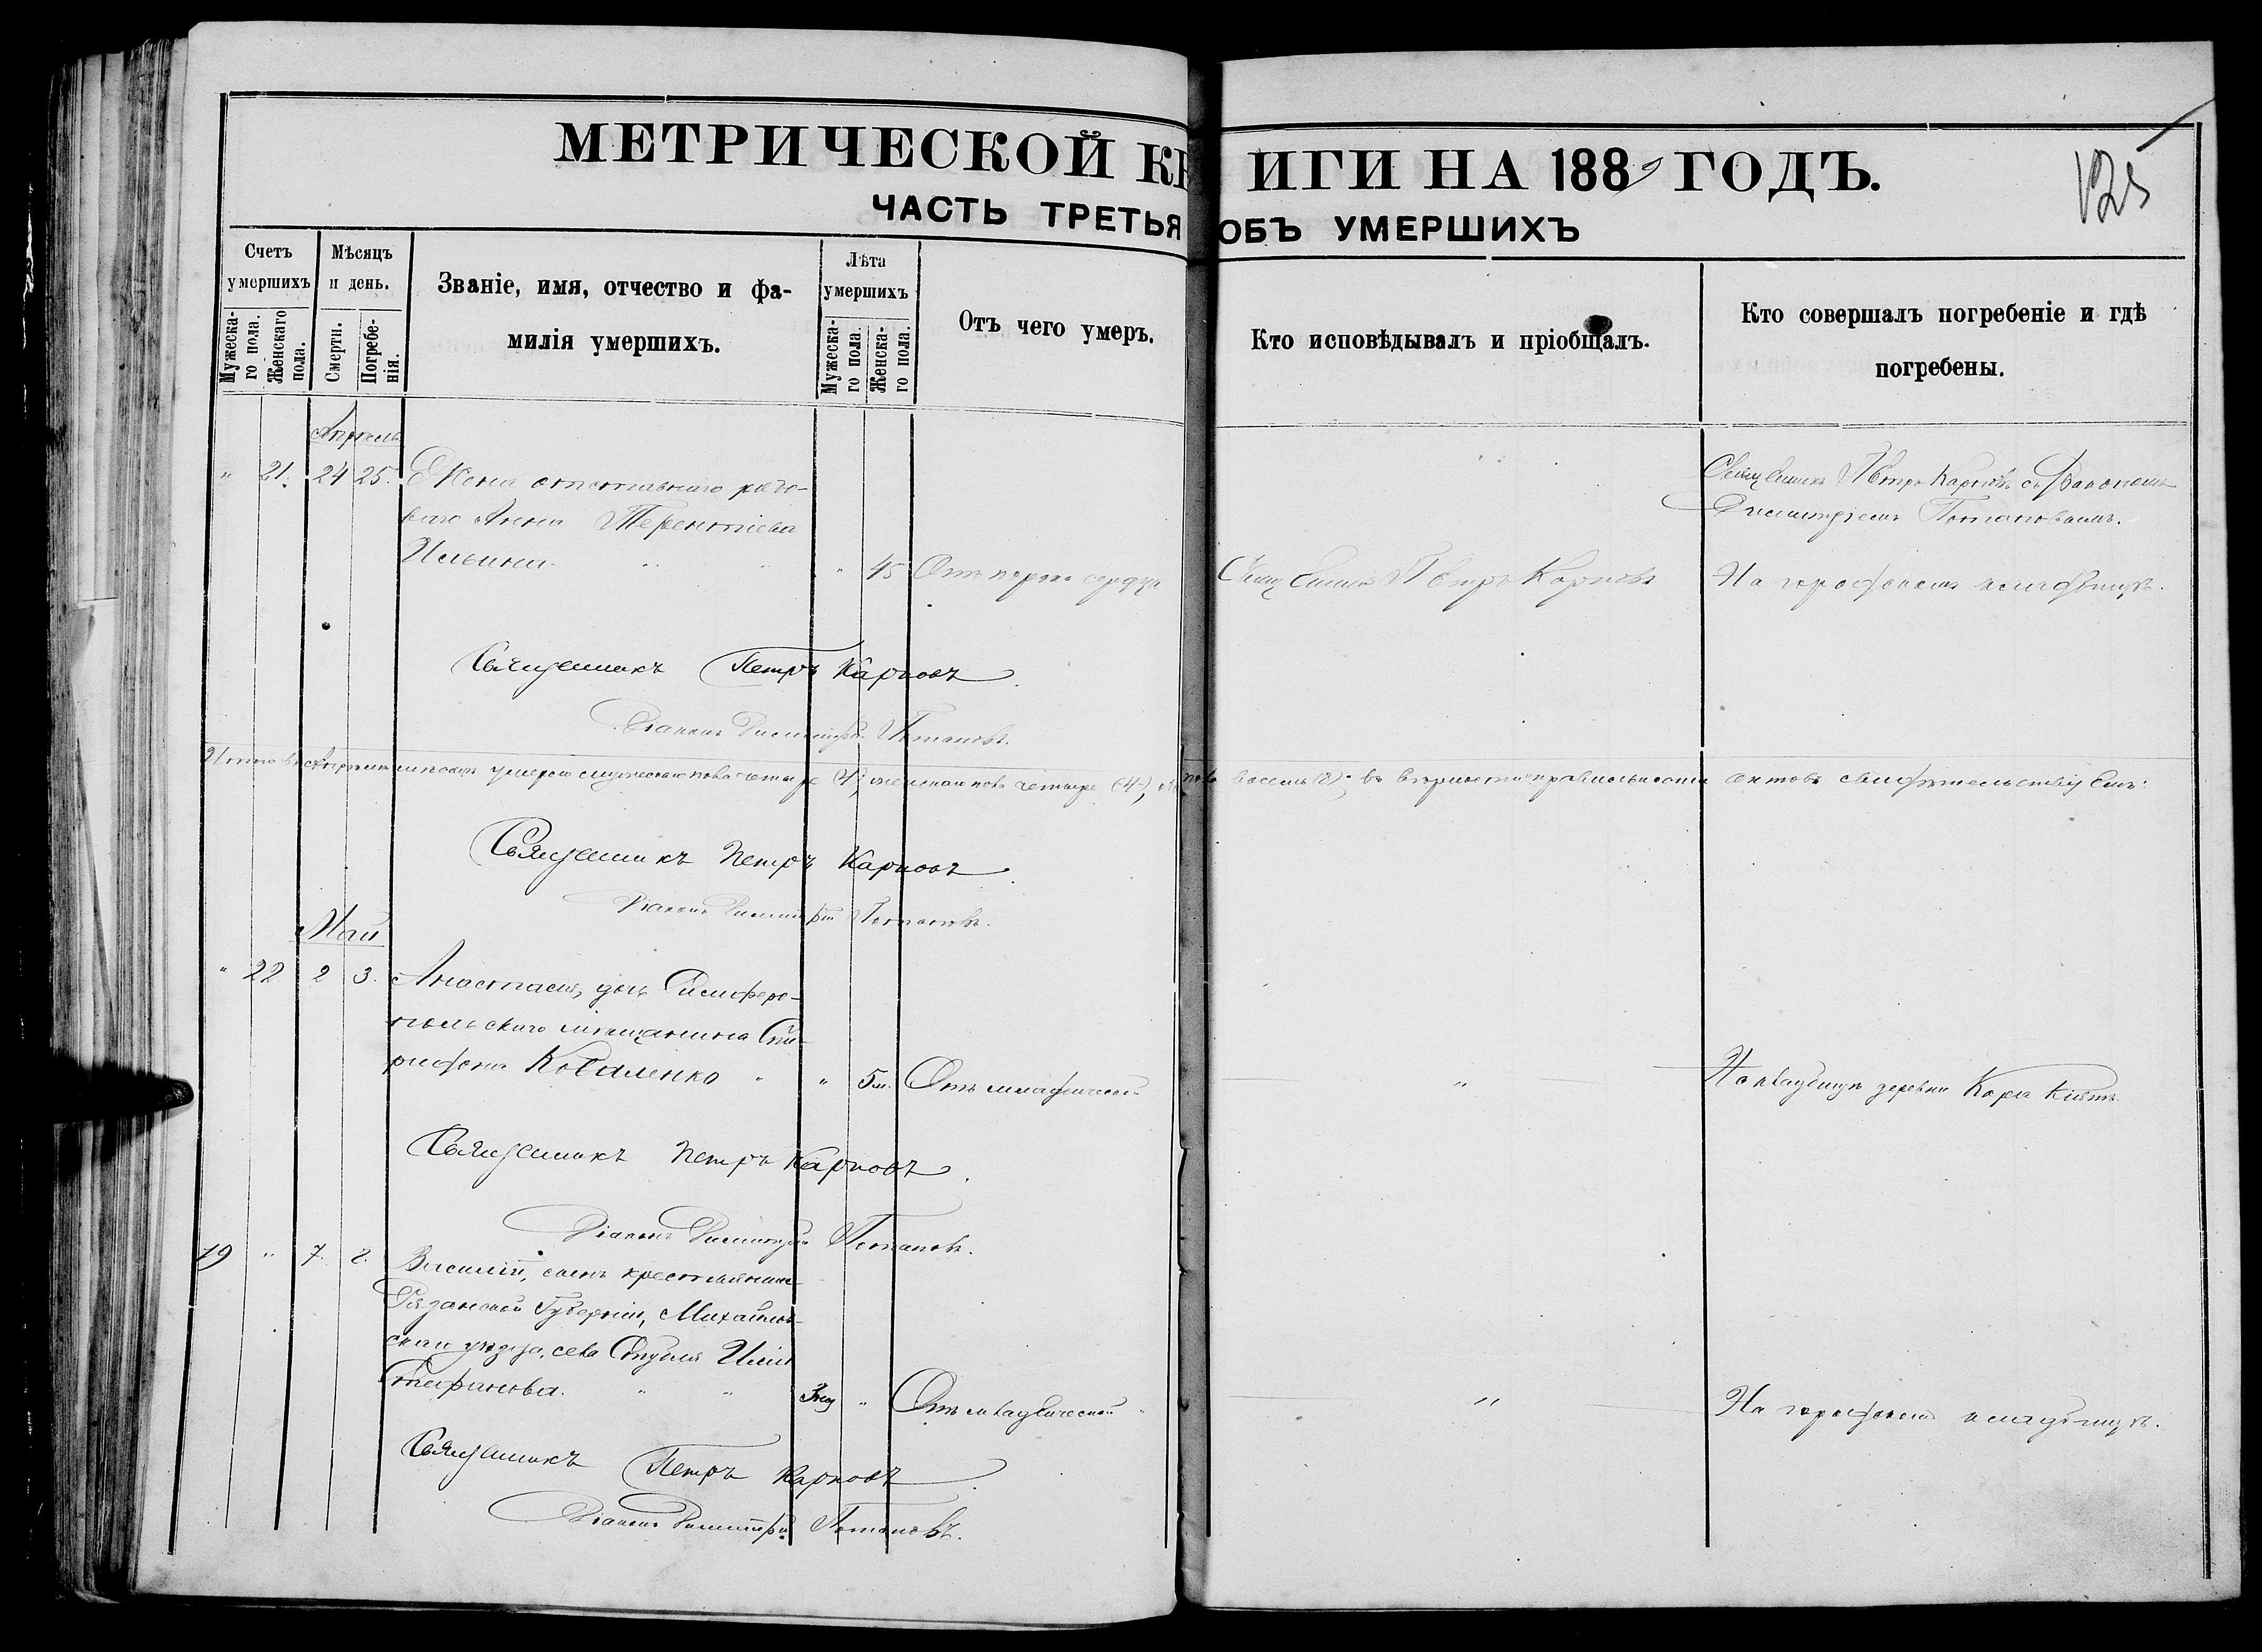 МЕТРИЧЕСКОЙ КНИГИ НА 188 ГОДЪ.
125
ЧАСТЬ ТРЕТЬЯ ОБЪ УМЕРШИХЪ
Счетъ умершихъ
Мужеска-го пола.
Женскаго пола.
Мѣсяцъ и день.
Смерти.
Погребе-нія.
Званіе, имя, отчество и фа-
милія умершихъ.
Лѣта умершихъ
Мужеска-го пола.
Женска-го пола.
Отъ чего умеръ.
Кто исповѣдывалъ и пріобщалъ.
Кто совершалъ погребеніе и гдѣ
погребены.
Апрель
" 21. 24 25. Жена отставнаго рядо-
ваго Анна Терентіева
Ильина " 45 Отъ порока сердца
Священникъ Петръ Карповъ
Священникъ Петръ Карповъ съ Діакономъ
Димитріемъ Потаповымъ.
На городскомъ кладбищѣ.
Священникъ Петръ Карповъ
Діаконъ Димитрій Потаповъ.
Итого въ Апрѣлѣ мѣсяцѣ умерло мужескаго пола четыре (4), женскаго пола четыре (4), пола восемь (8); въ вѣрности и правильности актовъ свидѣтельствуемъ:
Священникъ Петръ Карповъ
Діаконъ Димитрій Потаповъ.
Май
" 22 2 3. Анастасія, дочь Симферо-
польскаго мѣщанина Спи-
ридона Коваленко " " 5м. Отъ младенческой
"
На кладбищѣ деревни Кара Кіятъ
Священникъ Петръ Карповъ
Діаконъ Димитрій Потаповъ.
19 " 7. 8. Василій, сынъ крестьянина
Рязанской Губерніи, Михайлов-
скаго уѣзда, села Ильи
Стефанова. " " "
Отъ младенческой
"
На городскомъ кладбищѣ.
Священникъ Петръ Карповъ
Діаконъ Димитрій Потаповъ.